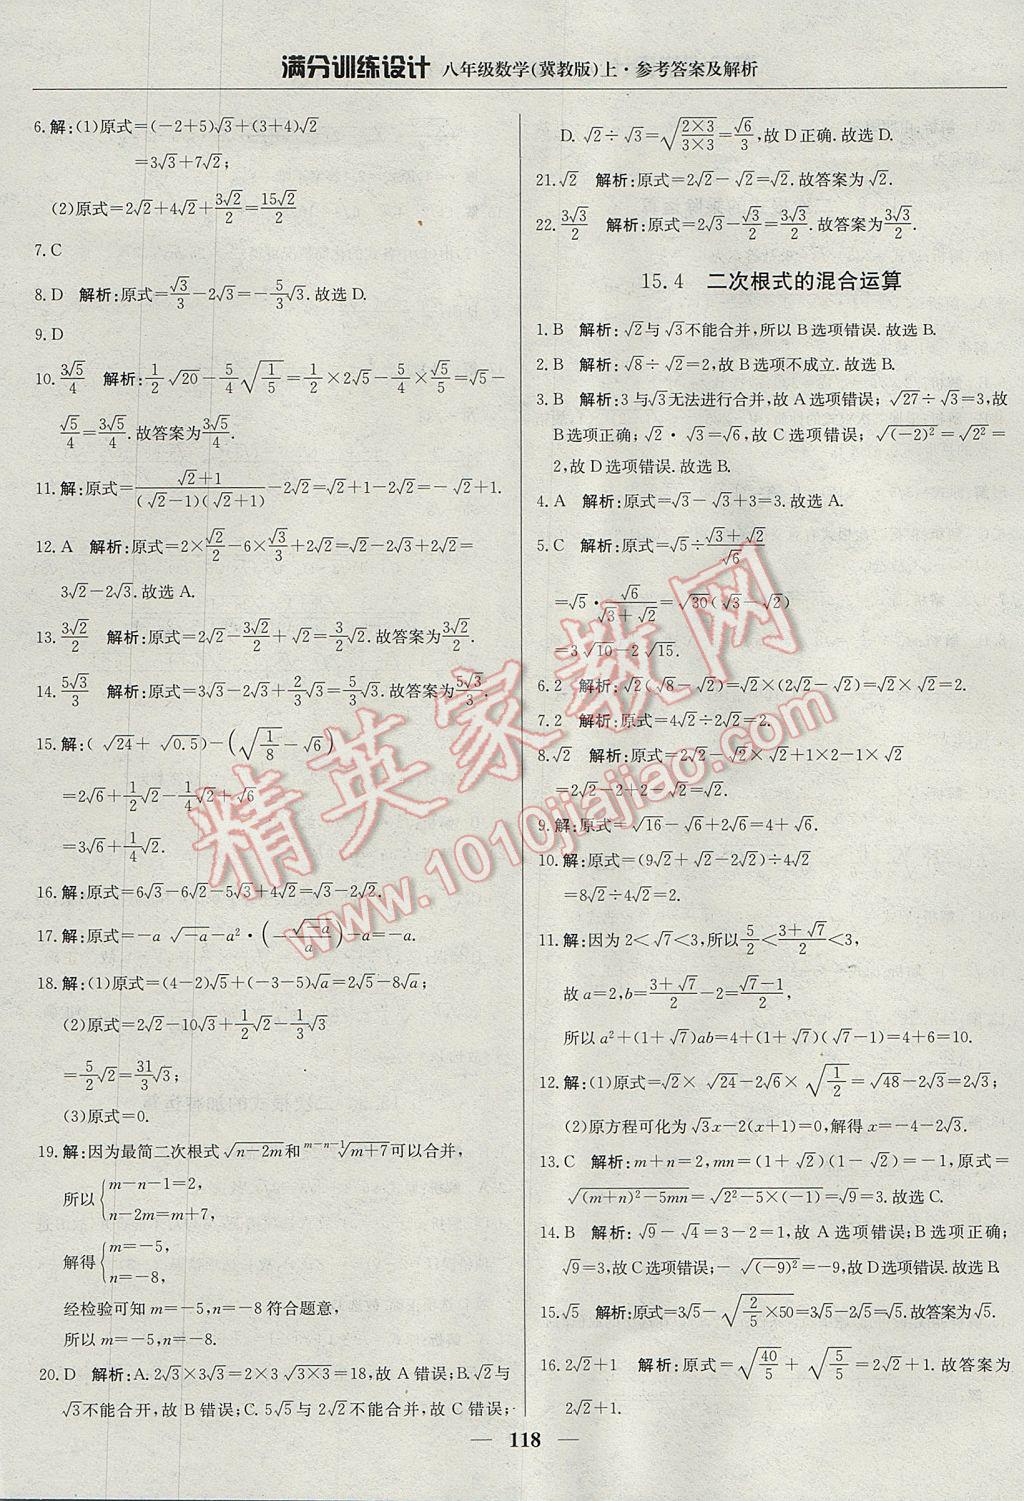 满分训练设计 八年级数学(冀教版)上·参考答案及解析
6.解:(1)原式=(-2+5)√3+(3+4)√2
=3√3+7√2;
(2)原式=2√2+4√2+3√2/2=15√2/2
7.C
8.D 解析:原式=√3/3-2√3=-5/3√3.故选D.
9.D
10.3√5/4 解析:1/2√20-5/4√(1/5)=1/2×2√5-5/4×√5/5=√5-
√5/4=3√5/4.故答案为3√5/4.
11.解:原式=(√2+1)/((√2-1)(√2+1))-2√2=√2+1-2√2=-√2+1.
12.A 解析:原式=2×√2/2-6×√3/3+2√2=√2-2√3+2√2=
3√2-2√3.故选A.
13.3√2/2 解析:原式=2√2-3√2/2+√2=3/2√2.故答案为3√2/2.
14.5√3/3 解析:原式=3√3-2√3+2/3√3=5/3√3.故答案为5√3/3.
15.解:(√24+√0.5)-(√(1/8)-√6)
=2√6+1/2√2-1/4√2+√6
=3√6+1/4√2.
16.解:原式=6√3-6√2-5√3+4√2=√3-2√2.
17.解:原式=-a√-a-a²·(-√-a/a)-a=-a.
18.解:(1)原式=(4-2)√5+(-3-5)√a=2√5-8√a;
(2)原式=2√2-10√3+1/2√2-1/3√3
=5/2√2=31/3√3;
(3)原式=0.
19.解:因为最简二次根式√(n-2m)和 ᵐ⁻ⁿ⁻¹√(m+7)可以合并,
所以{m-n-1=2,
n-2m=m+7,
解得{m=-5,
n=-8,
经检验可知m=-5,n=-8符合题意,
所以m=-5,n=-8.
20.D 解析:A.2√3×3√3=2×3√(3×3)=18,故A错误;B.√2与
√3不能合开,故B错误;C.5√5与2√2不能合并,故C错误;
D.√2÷√3=√((2×3)/(3×3))=√6/3,故D正确.故选D.
21.√2 解析:原式=2√2-√2=√2.故答案为√2.
22.3√3/2 解析:原式=2√3-√3/2=3√3/2.故答案为3√3/2.
15.4 二次根式的混合运算
1.B 解析:√2与√3不能合并,所以B选项错误.故选B.
2.B 解析:√8÷√2=2,故B选项不成立.故选B.
3.B 解析:3与√3无法进行合并,故A选项错误;√27÷√3=3,故
B选项正确;√2·√3=√6,故C选项错误;√(-2)²=√2²=
2,故D选项错误.故选B.
4.A 解析:原式=√3-√3+3=3.故选A.
5.C 解析:原式=√5÷(√3+√2)/√6
=√5·√6/(√3+√2)=√30(√3-√2)
=3√10-2√15.
6.2 解析:√2(√8-√2)=√2×(2√2-√2)=√2×√2=2.
7.2 解析:原式=4√2÷2√2=2.
8.√2 解析:原式=2√2-√2×√2+1×2-1×√2
=2√2-2+2-√2=√2.
9.解:原式=√16-√6+2√6=4+√6.
10.解:原式=(9√2+√2-2√2)÷4√2
=8√2÷4√2=2.
11.解:因为2<√7<3,所以5/2<(3+√7)/2<3,
故a=2,b=(3+√7)/2-2=(√7-1)/2,
所以a²+(1+√7)ab=4+(1+√7)(√7-1)=4+6=10.
12.解:(1)原式=√2×√24-2√6×√(1/2)=√48-2√3=2√3;
(2)原方程可化为√3x-2(x+1)=0,解得x=-4-2√3.
13.C 解析:m+n=2,mn=(1+√2)(1-√2)=-1,原式=
√((m+n)²-5mn)=√(2²-5×(-1))=√9=3.故选C.
14.B 解析:√9-√4=3-2=1,故A选项错误;B选项正确;
√9=3,故C选项错误;-√(-9)²=-9,故D选项错误.故选B.
15.√5 解析:原式=3√5-√(2/5×50)=3√5-2√5=√5.故答案为√5.
16.2√2+1 解析:原式=√(40/5)+√(5/5)=2√2+1.故答案为
2√2+1.
精英家教网
www.1010jiajiao.com
— 118 —